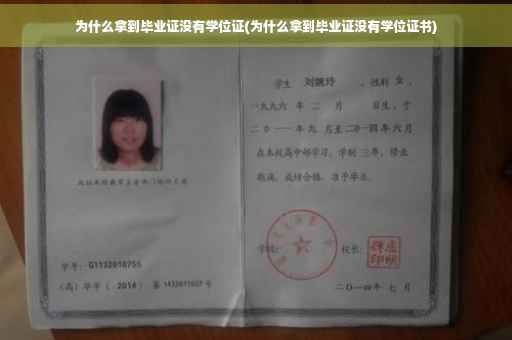 为什么拿到毕业证没有学位证(为什么拿到毕业证没有学位证书)
学生 刘婉玲 ，性别 女 ，
一九九六 年 二 月 日生，于
二〇一一 年 九 月至 二〇一四 年 六 月
在本校高中部学习，学制 三 年，修业
期满，成绩合格，准予毕业。
学校： 校长：
学号： G1132010755
（高）毕字（ 2014 ）第 1432011027 号
二〇一四年 七 月